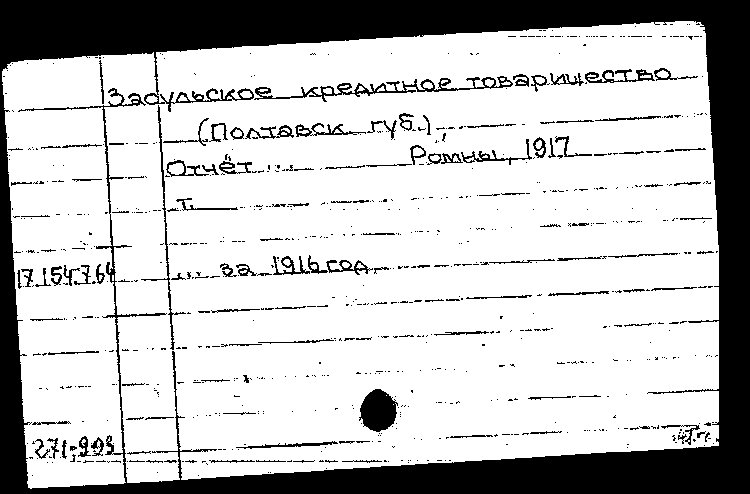 Засульское кредитное товарищество
(Полтавск. губ.).
Отчёт ... Ромны, 1917
т.
17.154.7.64 ... за 1916 год.
271;903